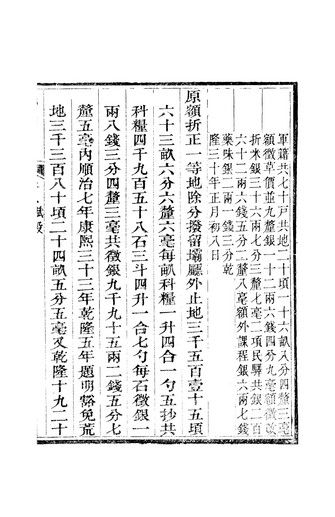 軍籍共七十戸共地二十頃一十六畝八分四釐三毫
額徵草價並九釐銀一十二兩六錢四分九毫額徵改
折米銀三十六兩七分三釐七毫二項民驛共銀二百
六十二兩六錢五分二釐八毫額外課程銀六兩七錢
藥味銀二兩一錢三分乾
隆三十年正月初八日
原額折正一等地除分撥留壩廳外止地三千五百壹十五頃
六十三畝六分六釐六毫每畝科糧一升四合一勺五抄共
科糧四千九百五十八石三斗四升一合七勺每石徵銀一
兩八錢三分四釐三毫共徵銀九千九十五兩二錢五分七
釐五毫內順治七年康熙三十三年乾隆五年題明豁免荒
地三千三百八十頃二十四畝五分五毫又乾隆十九二十
賦役